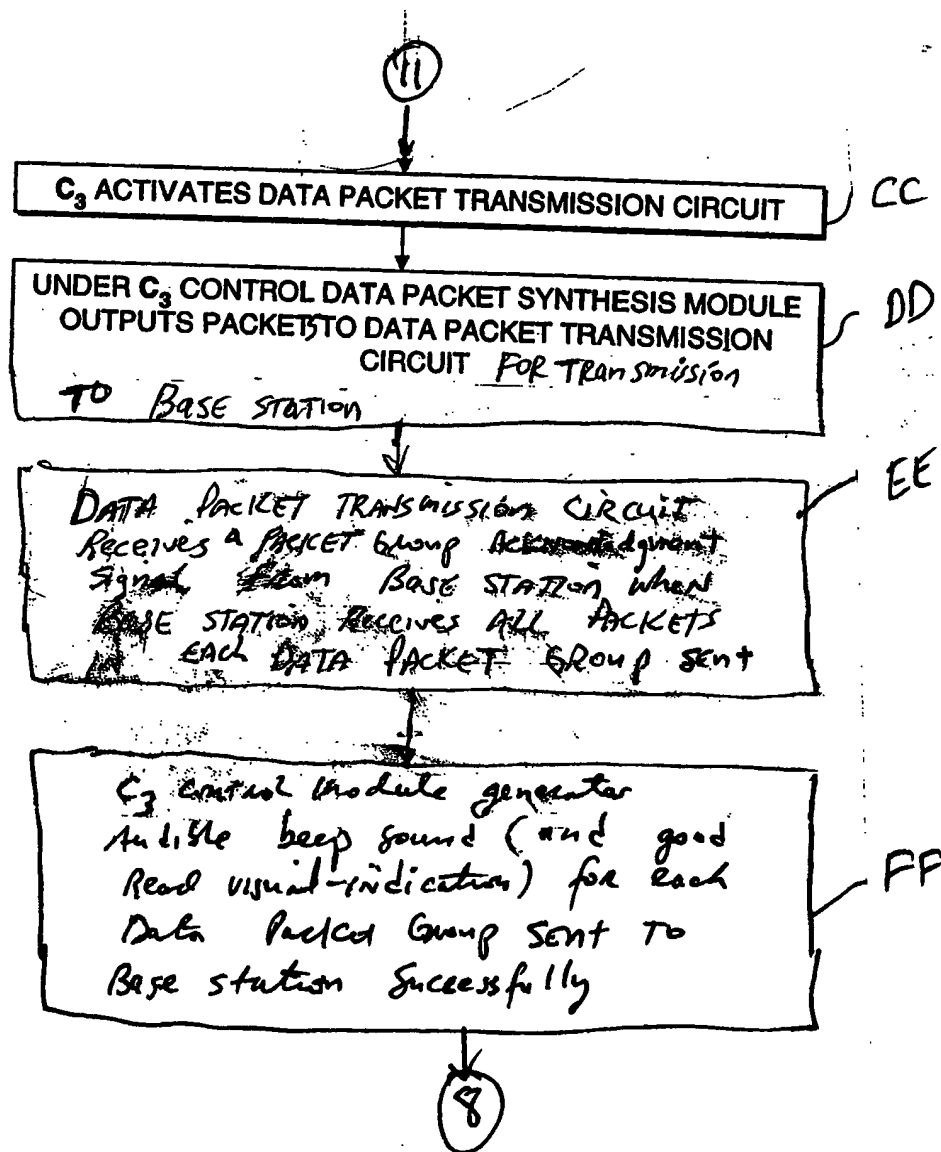 11
C3 ACTIVATES DATA PACKET TRANSMISSION CIRCUIT
CC
UNDER C3 CONTROL DATA PACKET SYNTHESIS MODULE
OUTPUTS PACKETS TO DATA PACKET TRANSMISSION
CIRCUIT FOR TRANSMISSION
TO BASE STATION
DD
DATA PACKET TRANSMISSION CIRCUIT
Receives a PACKET Group Acknowledgment
Signal from BASE STATION when
BASE STATION Receives ALL PACKETS
EACH DATA PACKET GROUP SENT
EE
C3 control module generates
Audible beep sound (and good
Read visual-indication) for each
Data Packet Group SENT TO
Base station Successfully
FF
8